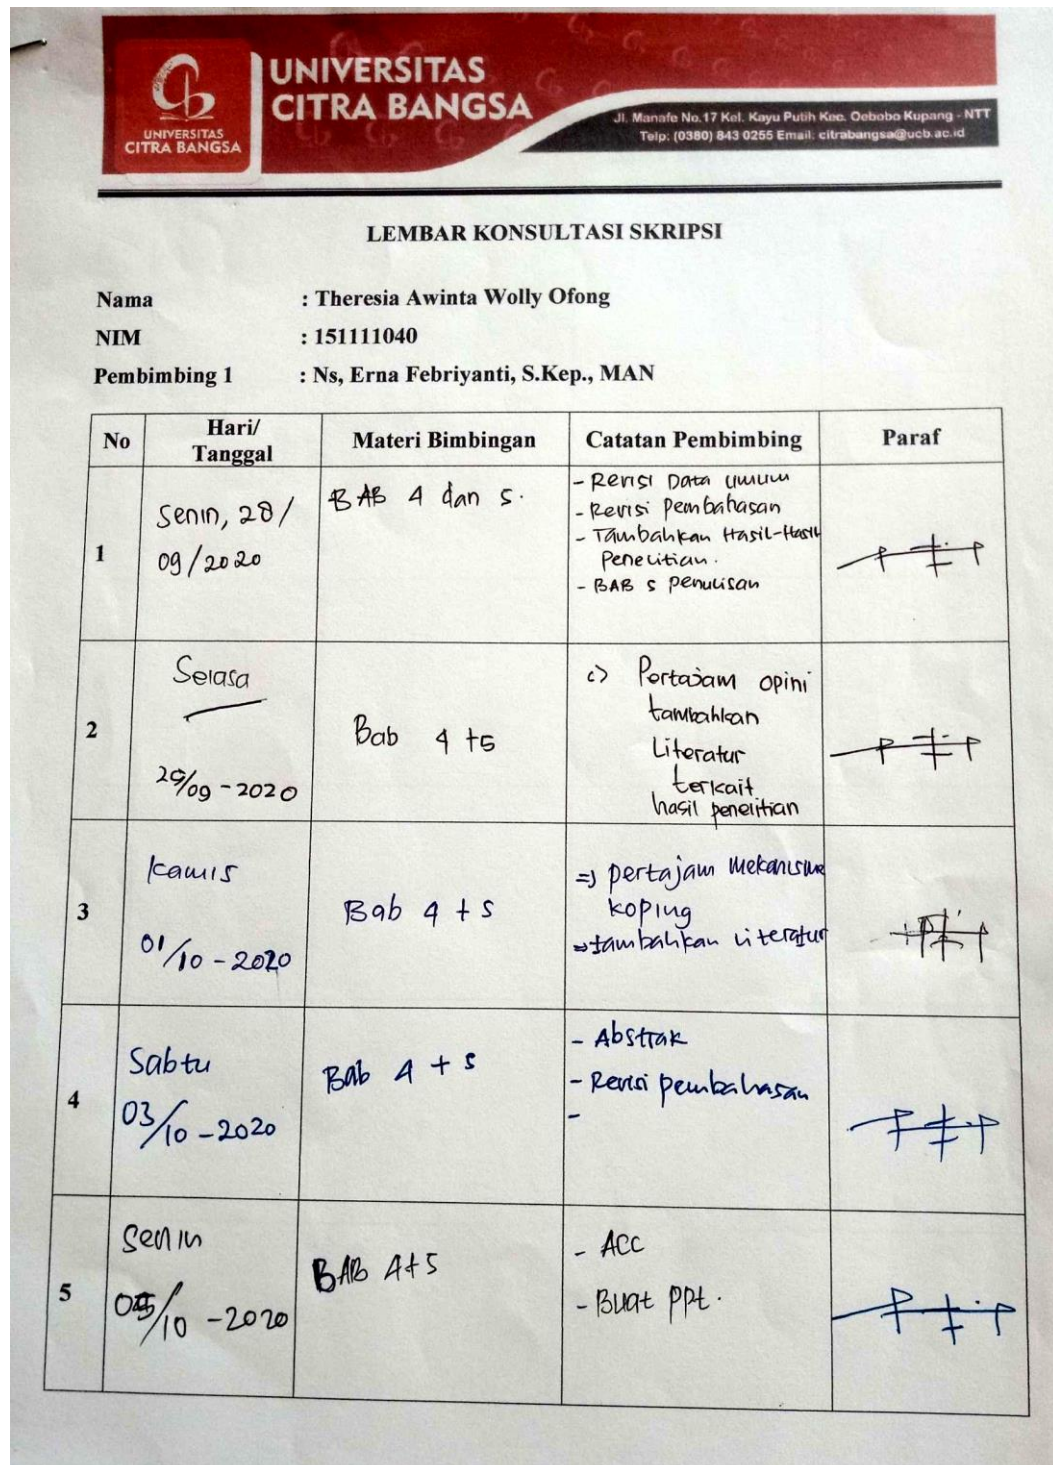 UNIVERSITAS
CITRA BANGSA
UNIVERSITAS
CITRA BANGSA
Jl. Manafe No.17 Kel. Kayu Putih Kec. Oebobo Kupang - NTT
Telp: (0380) 843 0255 Email: citrabangsa@ucb.ac.id
LEMBAR KONSULTASI SKRIPSI
Nama : Theresia Awinta Wolly Ofong
NIM : 151111040
Pembimbing 1 : Ns, Erna Febriyanti, S.Kep., MAN
No Hari/ Tanggal Materi Bimbingan Catatan Pembimbing Paraf
1
Senin, 28/
09/2020
BAB 4 dan 5.
- Revisi Data Umum
- Revisi Pembahasan
- Tambahkan Hasil-Hasil
Penelitian.
- BAB 5 Penulisan
2
Selasa
29/09-2020
Bab 4 +5
=> Pertajam opini
tambahkan
Literatur
terkait
hasil penelitian
3
Kamis
01/10-2020
Bab 4 + 5
=> pertajam mekanisme
koping
=> tambahkan literatur
4
Sabtu
03/10-2020
Bab 4 + 5
- Abstrak
- Revisi pembahasan
-
5
Senin
05/10-2020
BAB 4+5
- ACC
- Buat PPt.